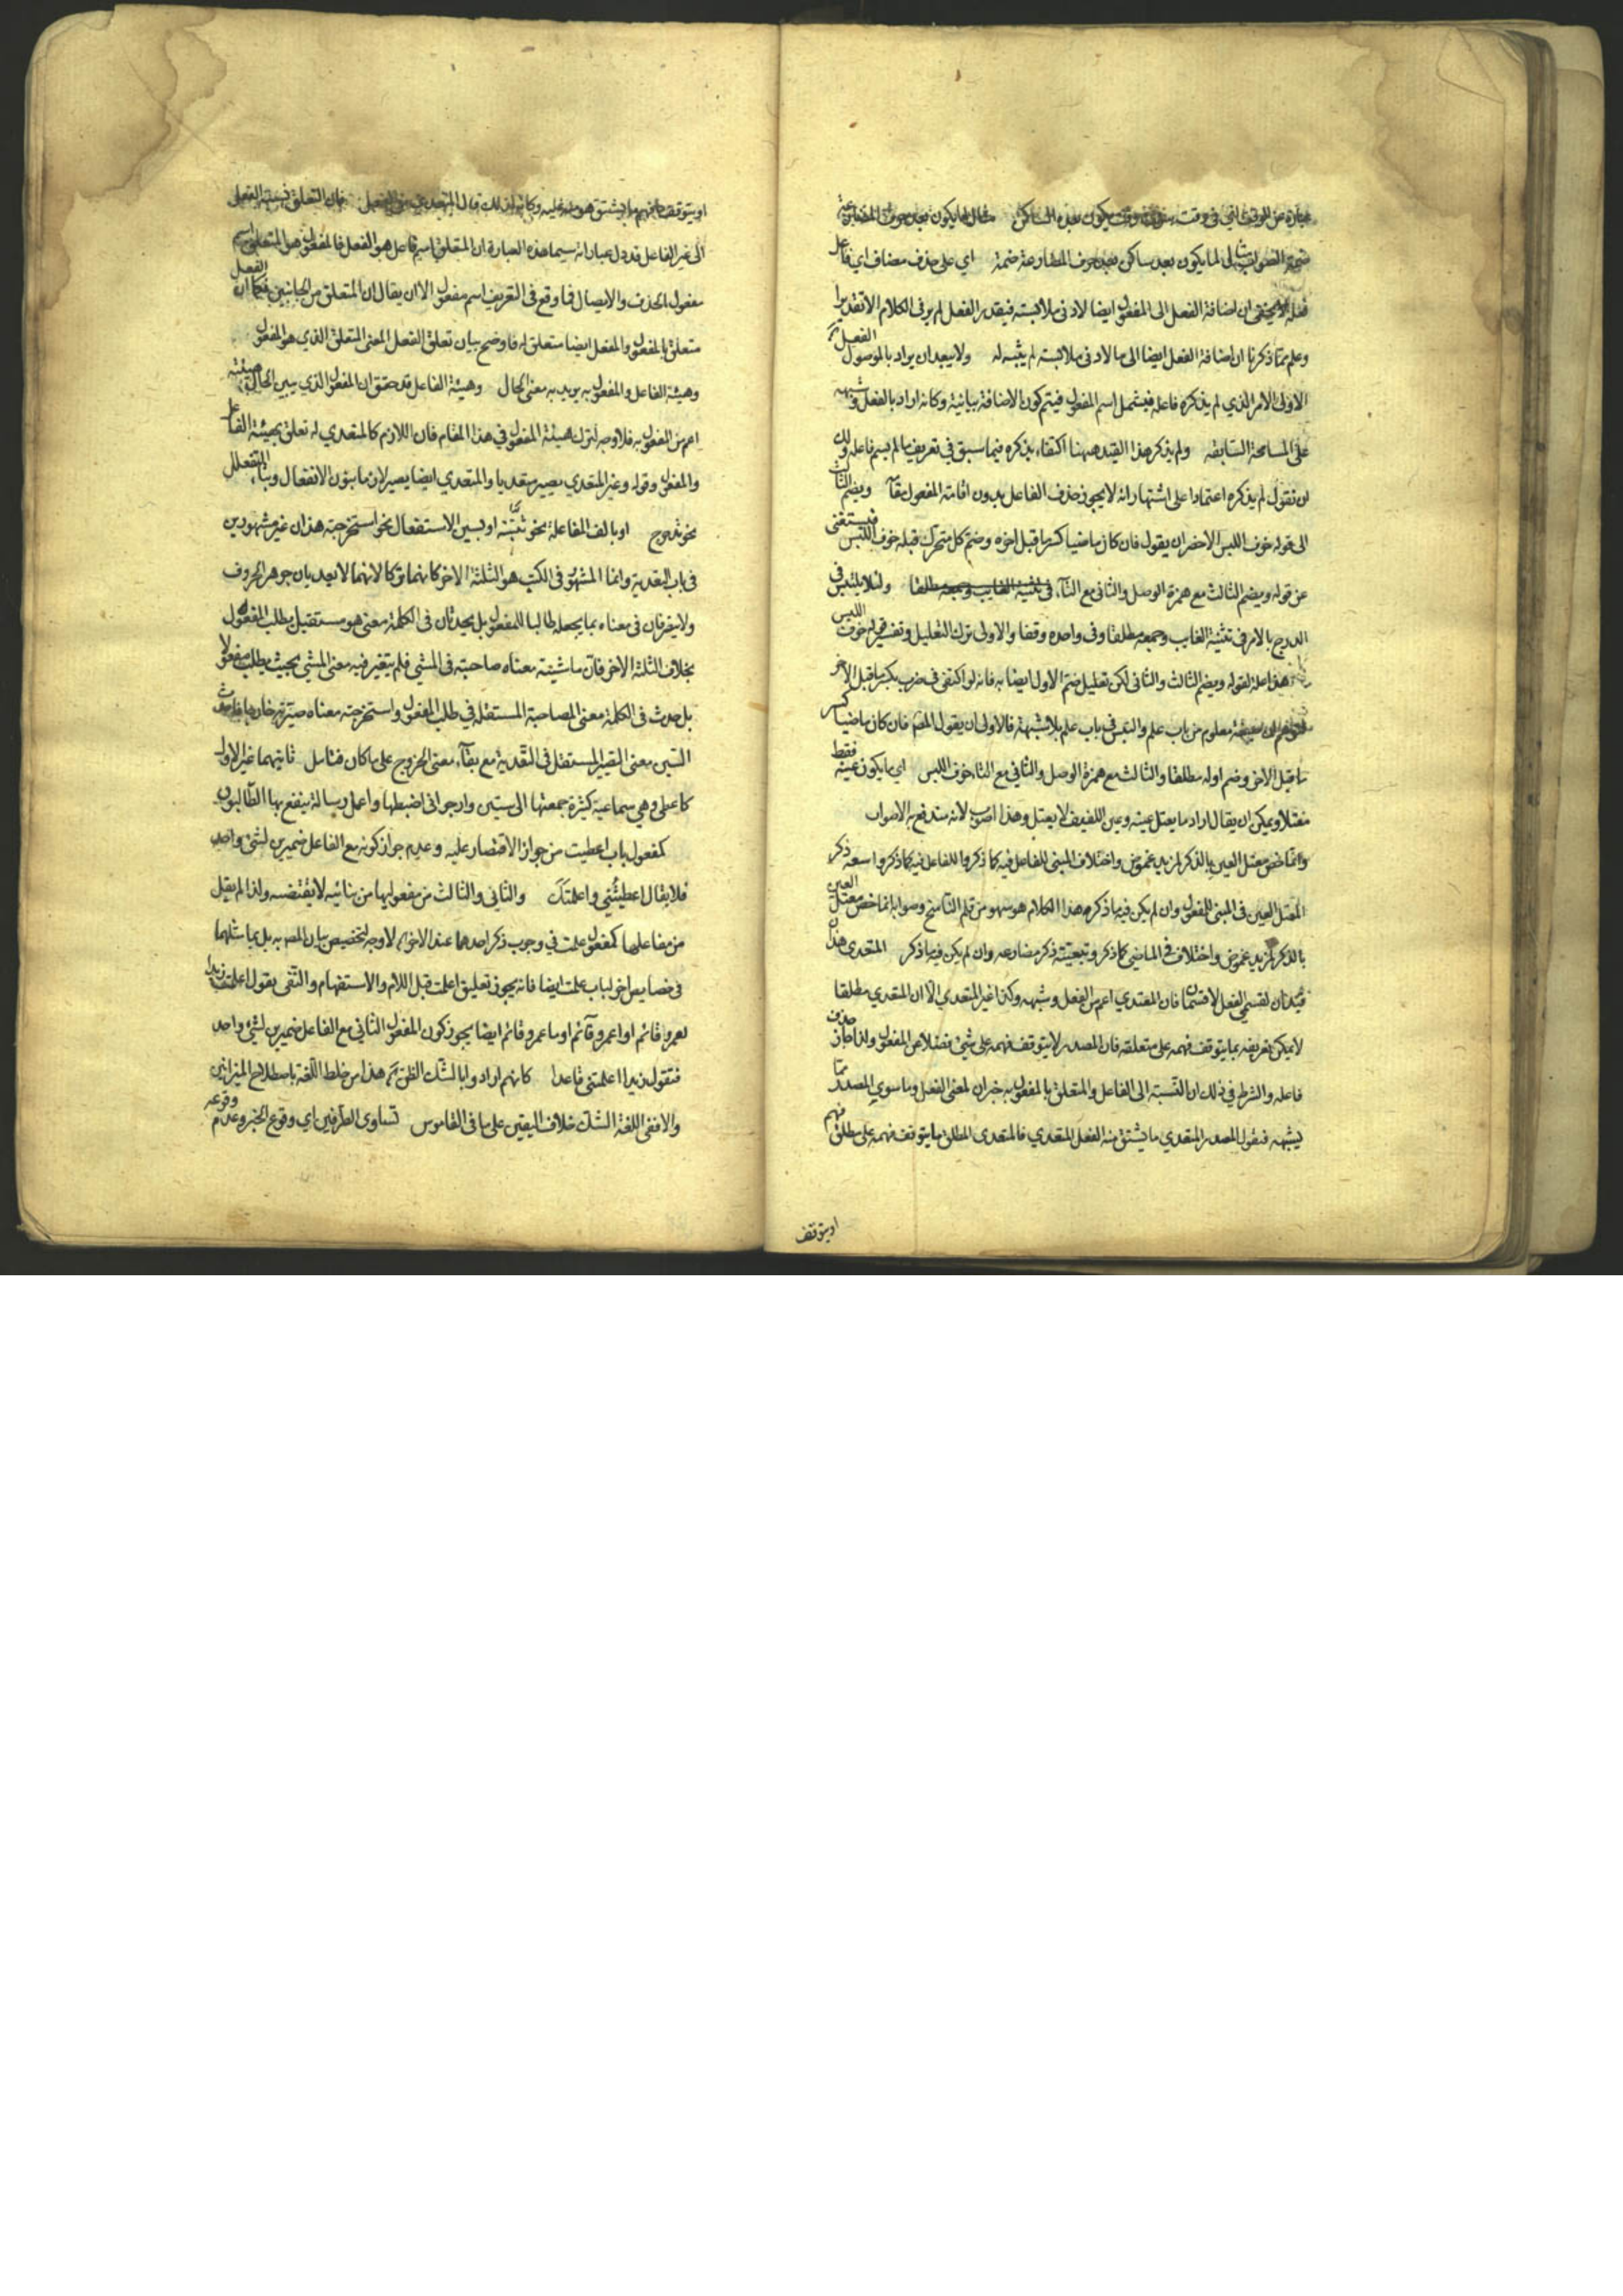 عبارة عن الوقف التي في وقت يكون بعده الساكن مثال لما يكون بعد حرف المضارعة
ضمة الصواب مثال لما يكون بعد ساكن بعد حرف المضارعة ضمة اي على حذف مضاف اي فاعل
فعله لا يخفى ان اضافة الفعل الى المفعول ايضا لادنى ملابسته فيقدر الفعل لم يرو في الكلام الا تقديرا
وعلم مما ذكرنا ان اضافة الفعل ايضا الى ما لادنى ملابسته لم يثبت له ولا يبعد ان يراد بالموصول الفعل
الاولى الامر الذي لم يذكره فاعله فيشمل اسم المفعول فيتم كون الاضافة بيانية وكانه اراد بالفعل وشبهه
على المسامحة السابقة ولم يذكر هذا القيد ههنا اكتفاء بذكره فيما سبق في تعريف ما لم يسم فاعله ولك
ان تقول لم يذكره اعتمادا على اشتهار انه لا يجوز حذف الفاعل بدون اقامة المفعول مقامه ويضم الثالث
الى قوله خوف اللبس الاخصر ان يقول فان كان ماضيا كسر ما قبل اخره وضم كل متحرك قبله خوف اللبس فيستغنى
عن قوله ويضم الثالث مع همزة الوصل والثاني مع التاء في تثنية الغايب وجمعه مطلقا ولئلا يلتبس في
الدرج بالامر في تثنية الغايب وجمعه مطلقا وفي واحده وقفا والاولى ترك التعليل وتفسير قوله خوف اللبس
هذا علة لقوله ويضم الثالث والثاني لكن تعليل ضم الاول ايضا به فانه لو اكتفى في ضرب بكسر ما قبل الاخر
معلوم من باب علم والتبس في باب علم بلا شبهة فالاولى ان يقول المصم فان كان ماضيا كسر
ما قبل الاخر وضم اوله مطلقا والثالث مع همزة الوصل والثاني مع التاء خوف اللبس اي ما يكون عينه فقط
معتلا ويمكن ان يقال اراد ما يعتل عينه وعين اللفيف لا يعتل وهذا اصوب لانه يندفع به الاصواب
وانما خص معتل العين بالذكر لمزيد غموض واختلاف المبنى للفاعل فيه كما ذكروا للفاعل فيه كما ذكروا ذكر
المعتل العين في المبنى للمفعول وان لم يكن فيه ما ذكره هذا الكلام هو سهو من قلم الناسخ وصوابه انما خص معتل العين
بالذكر لمزيد غموض واختلاف في الماضي كما ذكر وتبعيته ذكر مضارعه وان لم يكن فيه ما ذكر المتعدي هذان
قيدان لقسمي الفعل لا قسمان فان المتعدي اعم من الفعل وشبهه وكذا غير المتعدي الا ان المتعدي مطلقا
لا يمكن تعريفه بما يتوقف فهمه على متعلقه فان المصدر لا يتوقف فهمه على شئ فضلا عن المفعول ولذا جاز حذف
فاعله والشرط في ذلك ان النسبة الى الفاعل والمتعلق بالمفعول به جزان لمعنى الفعل وما سوى المصدر مما
يشبهه فنقول المصدر المتعدي ما يشتق منه الفعل المتعدي فالمتعدي المطلق ما يتوقف فهمه على متعلق
او يتوقف
او يتوقف فهم ما يشتق هو منه عليه وكانه لذلك قال المتعدي من الفعل فان التعلق نسبة الفعل
الى غير الفاعل قد دل عباراته سيما هذه العبارة ان المتعلق اسم فاعل هو الفعل فالمفعول هو المتعلق اسم
مفعول بالحذف والايصال فما وقع في التعريف اسم مفعول الا ان يقال ان المتعلق من الجانبين فكما ان الفعل
متعلق بالمفعول والمفعل ايضا متعلق له فاوضح بيان تعلق الفعل المعنى المتعلق الذي هو المفعول
وهيئة الفاعل والمفعول به يريد به معنى الحال وهيئة الفاعل قد حقق ان المفعول الذي يبين الحال هيئته
اعم من المفعول به فلا وجه لترك هيئة المفعول في هذا المقام فان اللازم كالمتعدي له تعلق بهيئة الفاعل
والمفعول وقوله وغير المتعدي يصير متعديا والمتعدي ايضا يصير لازما بنون الانفعال وبتاء التفعلل
نحو تدحرج او بالف المفاعلة نحو او بسين الاستفعال نحو استخرجته هذان غير مشهورين
في باب التعدية وانما المشهور في الكتب هو الثلثة الاخر كانهما تركا لانهما لا يعديان جوهر الحروف
ولا يغيران في معناه بما يجعله طالبا للمفعول بل يحدثان في الكلمة معنى هو مستقل بطلب المفعول
بخلاف الثلثة الاخر فان ماشيته معناه صاحبته في المشي فلم يتغير فيه معنى المشي بحيث يطلب مفعولا
بل حدث في الكلمة معنى المصاحبة المستقلة في طلب المفعول واستخرجته معناه صيرته خارجا فاحدث
السين معنى التصير المستقل في التعدية مع بقاء معنى الخروج على ما كان فتامل ثانيهما غير الاول
كاعطى وهي سماعية كثيرة جمعتها الى ستين وارجو اني اضبطها واعمل رسالة ينتفع بها الطالبون
كمفعول باب اعطيت من جواز الاقتصار عليه وعدم جواز كونه مع الفاعل ضميرين لشئ واحد
فلا يقال اعطيتُني واعلمتَكَ والثاني والثالث من مفعوليها من لا يقتضيه ولذا لم يقل
من مفاعلها كمفعولي علمت في وجوب ذكر احدهما عند الاخر لا وجه لتخصيص بيان المصم به بل يماثلهما
في خصايص اخر لباب علمت ايضا فانه يجوز تعليق اعلمت قبل اللام والاستفهام والنفي يقول اعلمتك زيدا
لعمرو قائم او اعمرو قائم او ما عمرو قائم ايضا يجوز كون المفعول الثاني مع الفاعل ضميرين لشئ واحد
فنقول زيدا اعلمتني قاعدا كانهم ارادوا بالشك الظن هذا من خلط اللغة باصطلاح الميزانيين
والا ففي اللغة الشك خلاف اليقين على ما في القاموس تساوى الطرفين اي وقوع الخبر وعدم وقوعه